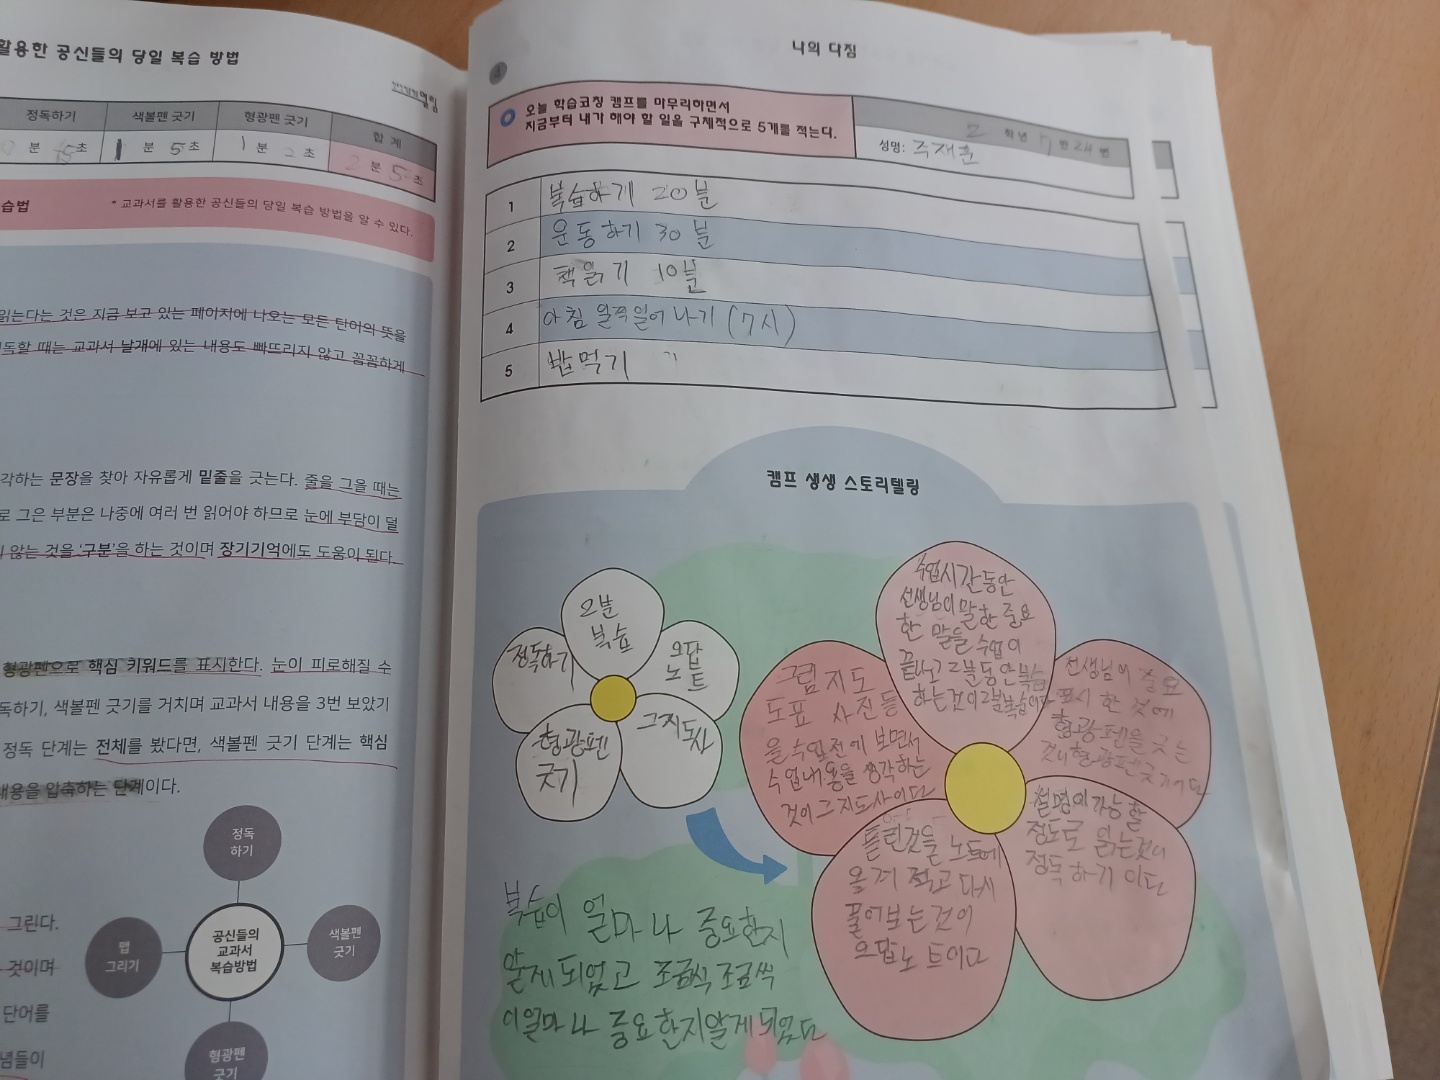 활용한 공신들의 당일 복습 방법
정독하기 색볼펜 긋기 형광펜 긋기 합 계
분 초 1 분 5 초 1 분 2 초 2 분 5 초
습법 * 교과서를 활용한 공신들의 당일 복습 방법을 알 수 있다.
읽는다는 것은 지금 보고 있는 페이지에 나오는 모든 단어의 뜻을
독할 때는 교과서 날개에 있는 내용도 빠뜨리지 않고 꼼꼼하게
각하는 문장을 찾아 자유롭게 밑줄을 긋는다. 줄을 그을 때는
로 그은 부분은 나중에 여러 번 읽어야 하므로 눈에 부담이 덜
않는 것을 '구분'을 하는 것이며 장기기억에도 도움이 된다.
형광펜으로 핵심 키워드를 표시한다. 눈이 피로해질 수
독하기, 색볼펜 긋기를 거치며 교과서 내용을 3번 보았기
정독 단계는 전체를 봤다면, 색볼펜 긋기 단계는 핵심
내용을 압축하는 단계이다.
정독
하기
그린다.
맵
그리기
공신들의
교과서
복습방법
색볼펜
긋기
것이며
단어를
념들이
형광펜
긋기
나의 다짐
4
오늘 학습코칭 캠프를 마무리하면서
지금부터 내가 해야 할 일을 구체적으로 5개를 적는다.
2 학년 7 반 24 번
성명: 주재훈
1 복습하기 20분
2 운동하기 30분
3 책읽기 10분
4 아침 일어나기 (7시)
5 밥먹기
캠프 생생 스토리텔링
2분
복습
정독하기
오답
노트
형광펜
긋기
그지도사
수업시간동안
선생님이 말한 중요
한 말을 수업이
끝나고 2분동안 복습
하는것이 2분복습이다
그림 지도
도표 사진등
을 수업전에 보면서
수업내용을 생각하는
것이 그지도사이다
선생님이 중요
표시 한 것에
형광펜을 긋는
것이 형광펜긋기이다
설명이 가능할
정도로 읽는것이
정독하기 이다
틀린것을 노트에
옮겨 적고 다시
풀어보는것이
오답노트이다
복습이 얼마나 중요한지
알게되었고 조금씩 조금씩
이얼마나 중요한지알게되었다